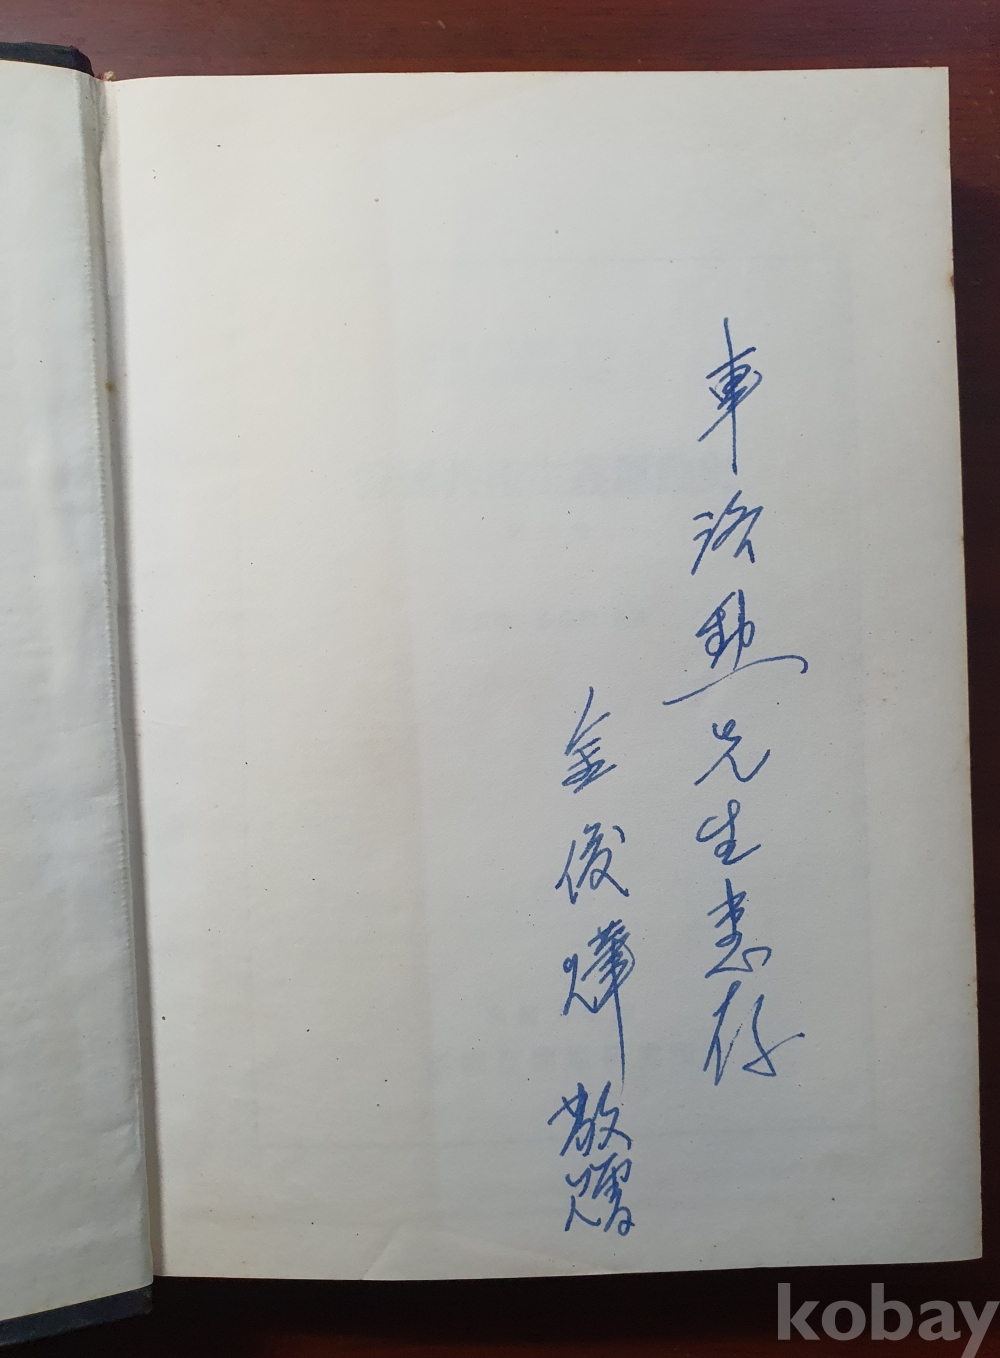 車洛勳先生惠存
金俊燁 敬贈
kobay